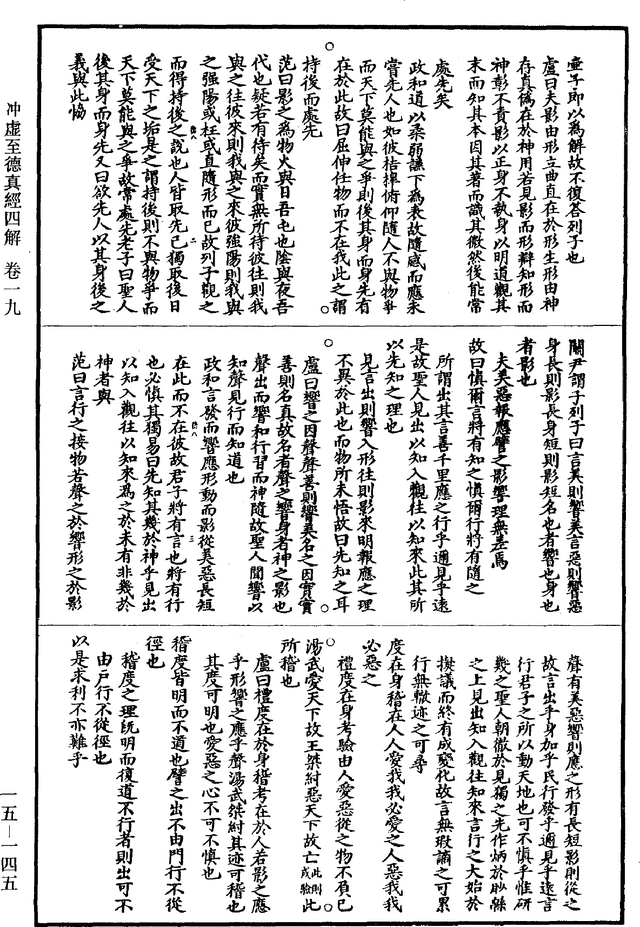 冲虛至德真經四解　卷一九
一五—一四五
壺子即以為解故不復荅列子也
盧曰夫影由形立曲直在於形生形由神
存真偽在於神用若見影而形辯知形而
神彰不責影以正身不執身以明道觀其
末而知其本因其著而識其微然後能常
處先矣
政和道以柔弱謙下為表故隨感而應未
嘗先人也如彼桔槔俯仰隨人不與物爭
而天下莫能與之爭則後其身而身先有
在於此故曰屈伸任物而不在我此之謂
持後而處先
范曰影之為物火與日吾屯也陰與夜吾
代也疑若有待矣而實無所待彼往則我
與之往彼來則我與之來彼強陽則我與
之強陽或枉或直隨形而已故列子觀之
而得持後之說也人皆取先己獨取後曰
受天下之垢是之謂持後則不與物爭而
天下莫能與之爭故常處先老子曰聖人
後其身而身先又曰欲先人以其身後之
義與此恊
關尹謂子列子曰言美則響美言惡則響惡
身長則影長身短則影短名也者響也身也
者影也
夫美惡報應譬之影響理無差焉
故曰慎爾言將有和之慎爾行將有隨之
所謂出其言善千里應之行乎邇見乎遠
是故聖人見出以知入觀往以知來此其所
以先知之理也
見言出則響入形往則影來明報應之理
不異於此也而物所未悟故曰先知之耳
盧曰響之因聲聲善則響美名之因實實
善則名真故名者聲之響身者神之影也
聲出而響和行習而神隨故聖人聞響以
知聲見行而知道也
政和言發而響應形動而影從美惡長短
在此而不在彼故君子將有言也將有行
也必慎其獨易曰先知其幾於神乎見出
以知入觀往以知來為之於未有非幾於
神者與
范曰言行之接物若聲之於響形之於影
聲有美惡響則應之形有長短影則從之
故言出乎身加乎民行發乎邇見乎遠言
行君子之所以動天地也可不慎乎惟研
幾之聖人朝徹於見獨之先作炳於眇緜
之上見出知入觀往知來言行之大始於
擬議而終有成變化故言無瑕讁之可累
行無轍迹之可尋
度在身稽在人人愛我我必愛之人惡我我
必惡之
禮度在身考驗由人愛惡從之物不負已
湯武愛天下故王桀紂惡天下故亡此則成驗此
所稽也
盧曰禮度在於身稽考在於人若影之應
乎形響之應乎聲湯武桀紂其迹可稽也
其度可明也愛惡之心不可不慎也
稽度皆明而不道也譬之出不由門行不從
徑也
稽度之理既明而復道不行者則出可不
由戶行不從徑也
以是求利不亦難乎